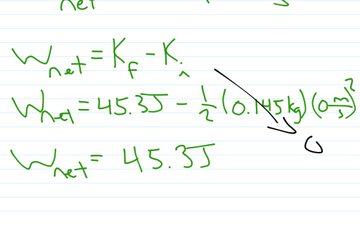 net s
W_net = K_f - K_i
W_net = 45.3J - 1/2 (0.145kg)(0 m/s)^2
0
W_net = 45.3J